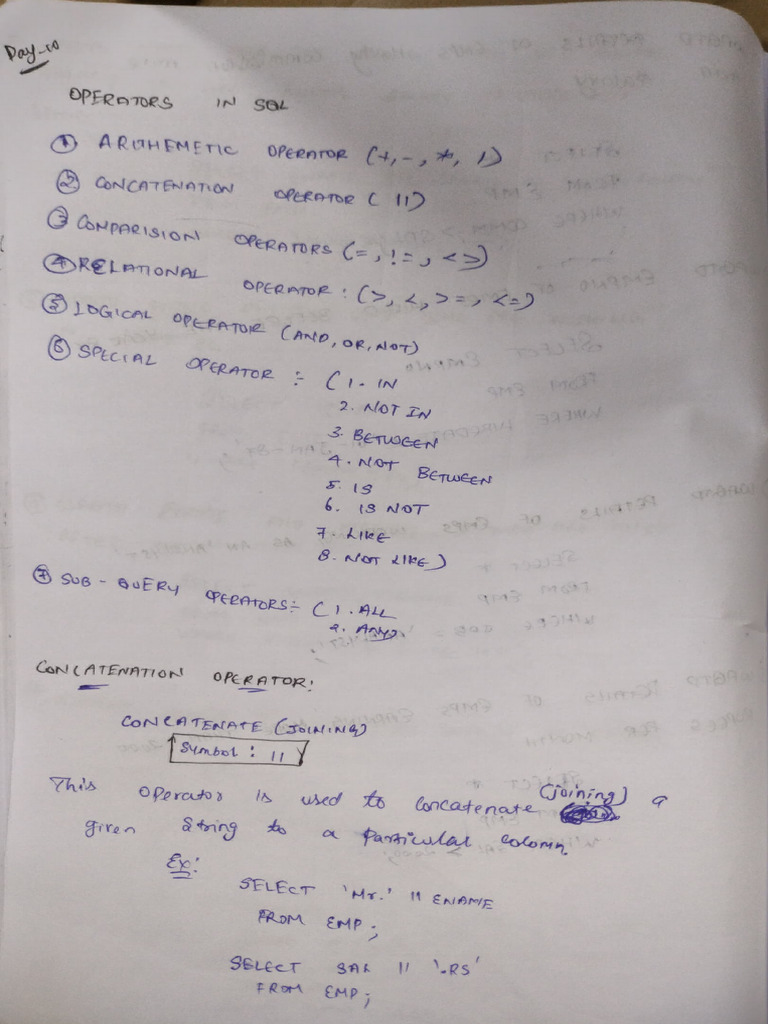 Day-10
OPERATORS IN SQL
① ARITHEMETIC OPERATOR (+, -, *, /)
② CONCATENATION OPERATOR ( || )
③ COMPARISION OPERATORS (=, !=, <>)
④ RELATIONAL OPERATOR : (>, <, >=, <=)
⑤ LOGICAL OPERATOR (AND, OR, NOT)
⑥ SPECIAL OPERATOR :- (1. IN
2. NOT IN
3. BETWEEN
4. NOT BETWEEN
5. IS
6. IS NOT
7. LIKE
8. NOT LIKE)
⑦ SUB - QUERY OPERATORS:- (1. ALL
2. ANY)
CONCATENATION OPERATOR:
CONCATENATE (JOINING)
Symbol : ||
This operator is used to concatenate (joining) a
given string to a particular colomn.
Ex:
SELECT 'Mr.' || ENAME
FROM EMP;
SELECT SAL || '.RS'
FROM EMP;